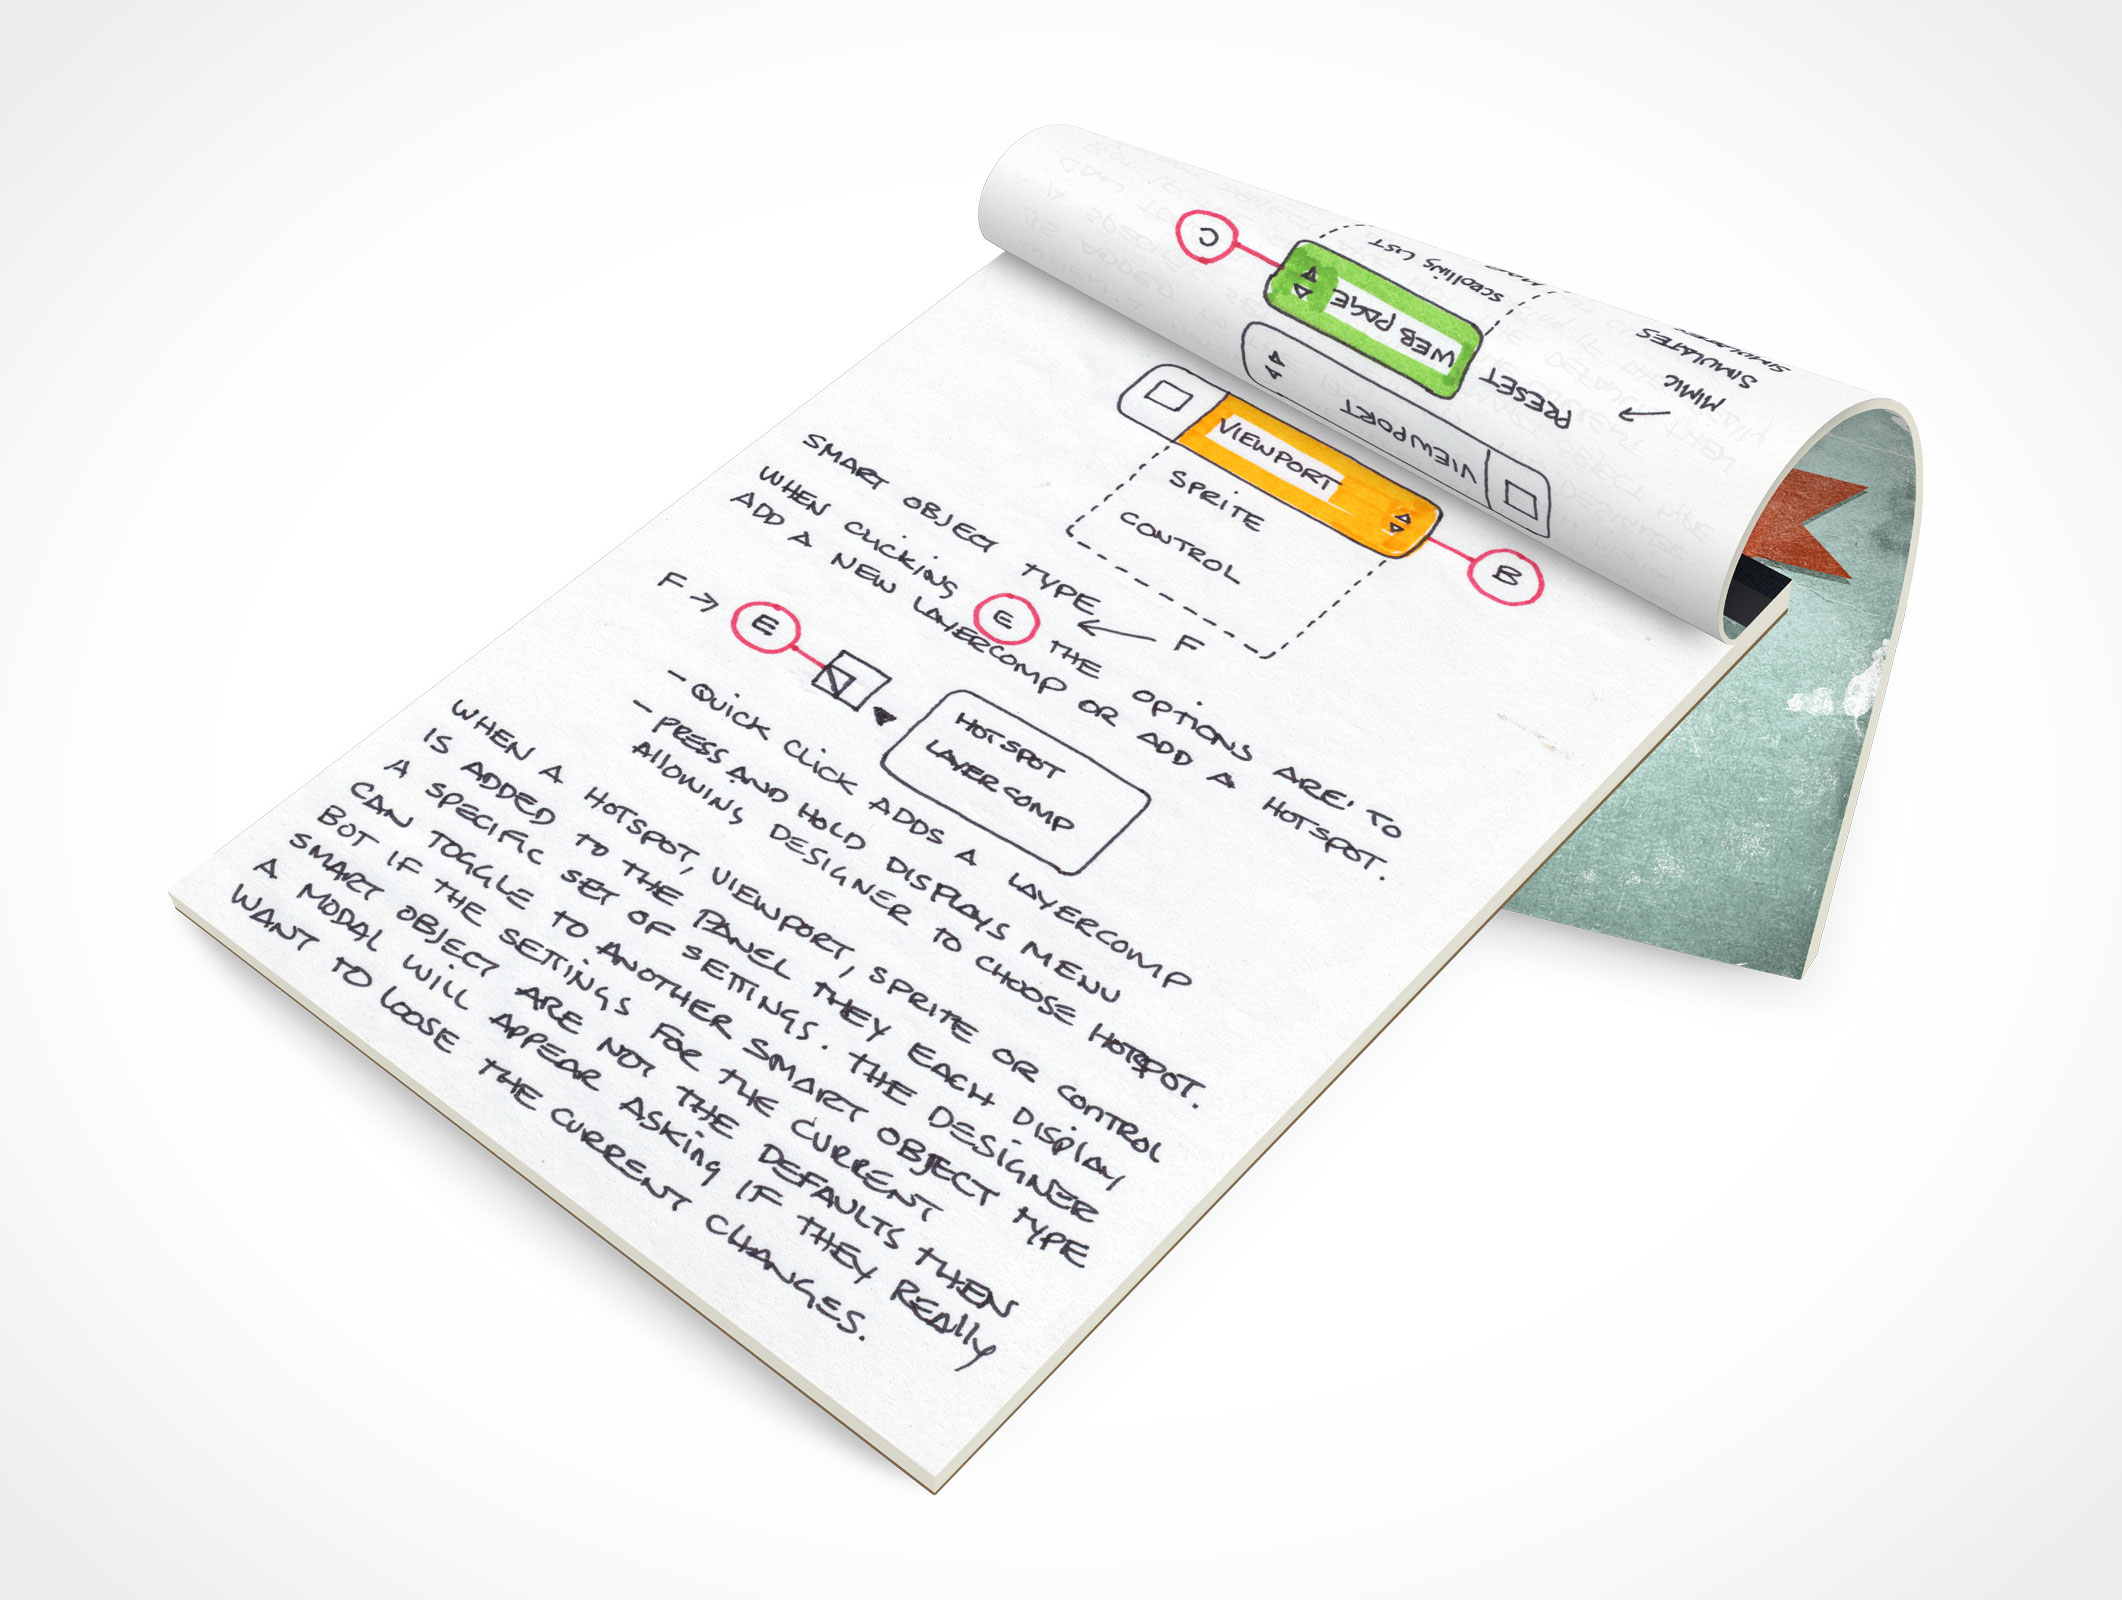 C
SCROLLING LIST
WEB PAGE
SIMULATES
MIMIC
PRESET
VIEWPORT
VIEWPORT
B
SPRITE
CONTROL
SMART OBJECT TYPE ← F
WHEN CLICKING E THE OPTIONS ARE: TO
ADD A NEW LAYERCOMP OR ADD A HOTSPOT.
F → E
HOTSPOT
LAYERCOMP
- QUICK CLICK ADDS A LAYERCOMP
- PRESS AND HOLD DISPLAYS MENU
ALLOWING DESIGNER TO CHOOSE HOTSPOT.
WHEN A HOTSPOT, VIEWPORT, SPRITE OR CONTROL
IS ADDED TO THE PANEL THEY EACH DISPLAY
A SPECIFIC SET OF SETTINGS. THE DESIGNER
CAN TOGGLE TO ANOTHER SMART OBJECT TYPE
BOT IF THE SETTINGS FOR THE CURRENT
SMART OBJECT ARE NOT THE DEFAULTS THEN
A MODAL WILL APPEAR ASKING IF THEY REALLY
WANT TO LOOSE THE CURRENT CHANGES.